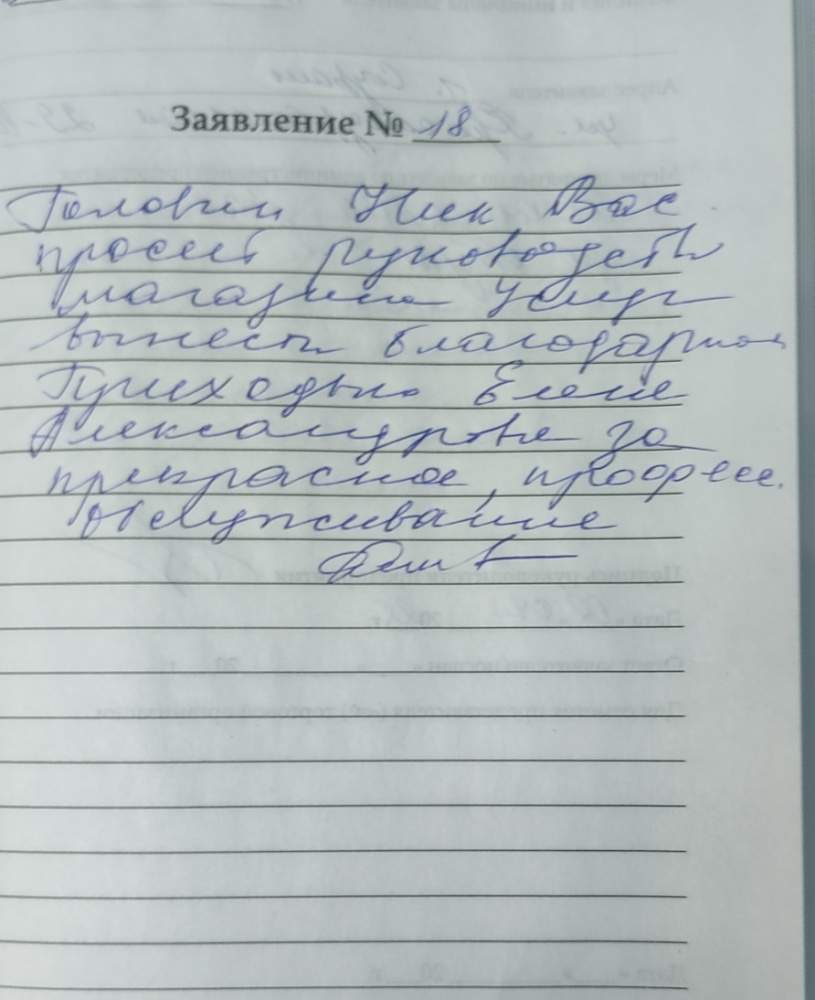 Заявление № 18
Головин Ник Вас
просит руководств
магазина
вынести благодарнос
Елене
Александровне за
прекрасное, професс.
обслуживание